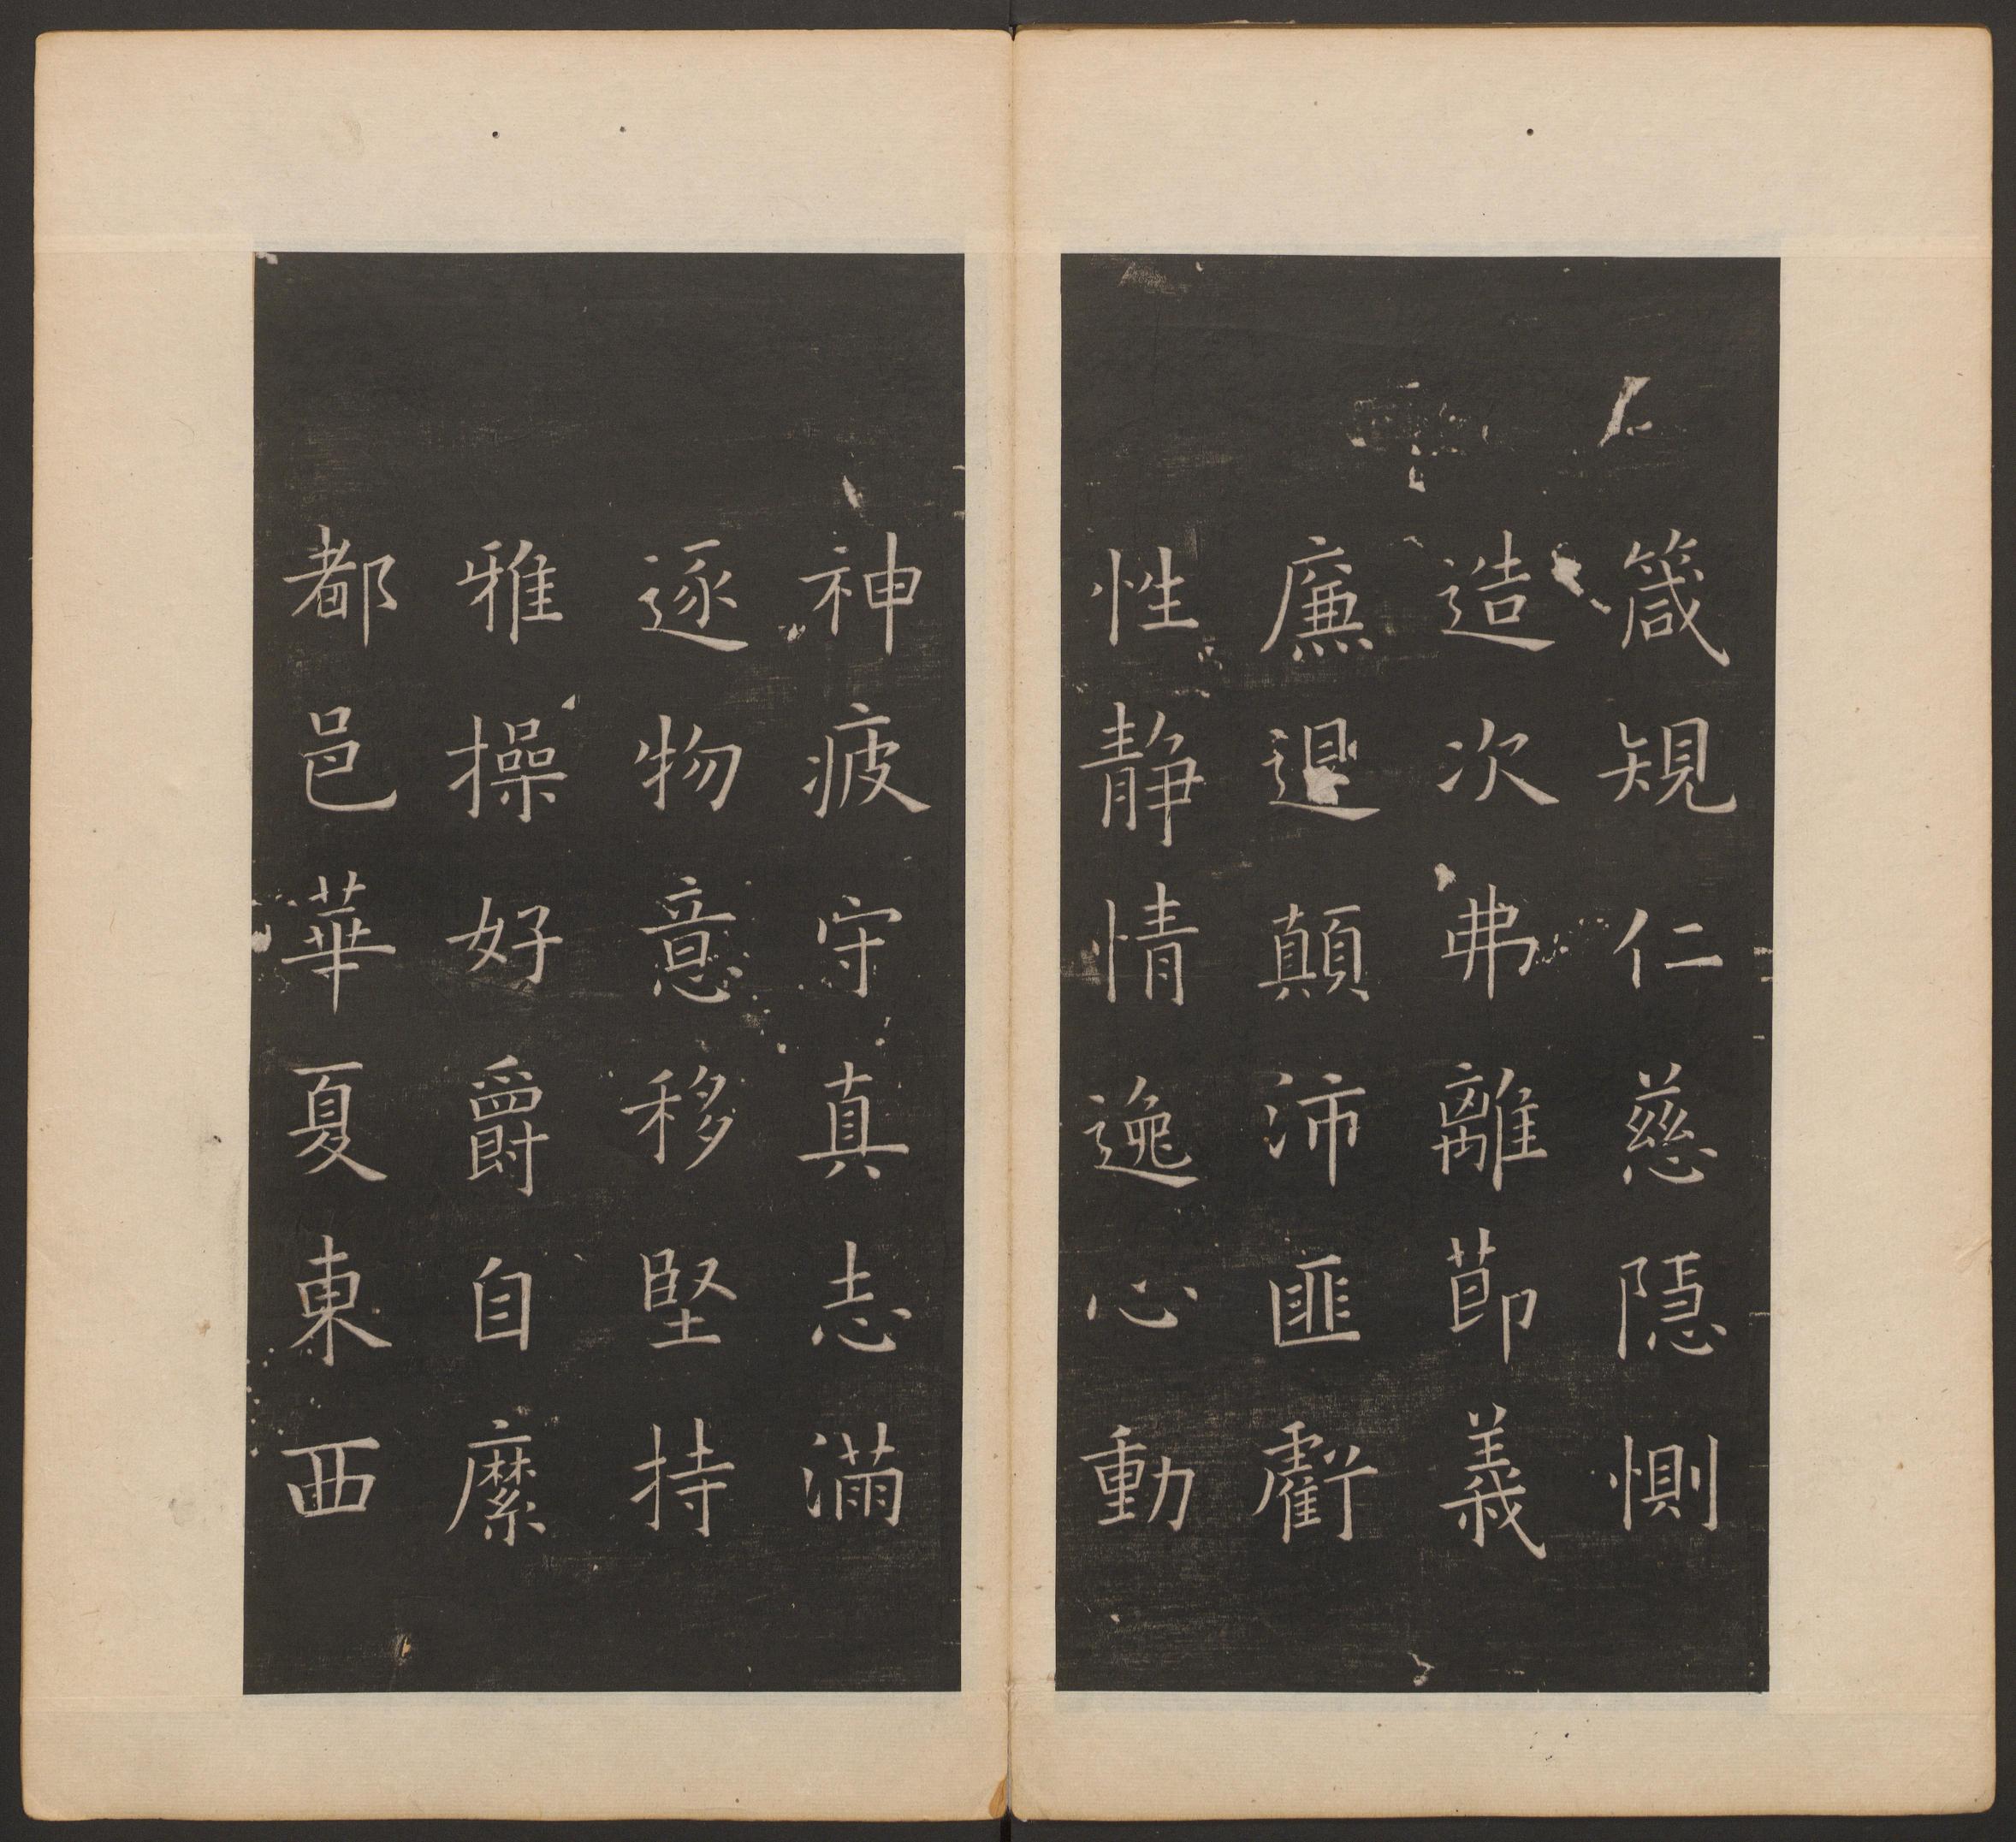 箴䂓仁慈隱惻
造次弗離莭義
廉退顛沛匪虧
性静情逸心動
神疲守真志滿
逐物意移堅持
雅操好爵自縻
都邑華夏東西